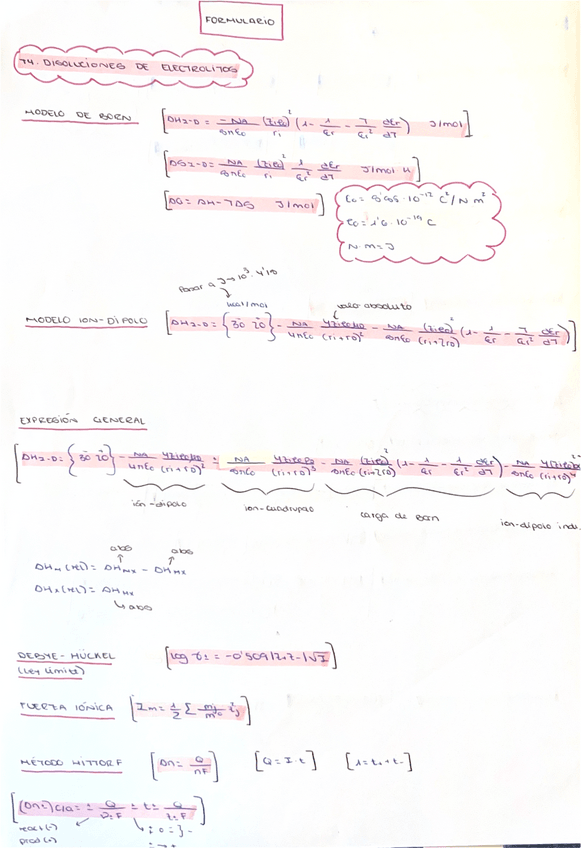 FORMULARIO
T4. DISOLUCIONES DE ELECTROLITOS
MODELO DE BORN [ΔH I-D = -NA/8πε0 (zie0)²/ri (1 - 1/εr - T/εr² dεr/dT) J/mol]
[ΔS I-D = NA/8πε0 (zie0)²/ri 1/εr² dεr/dT J/mol K]
[ΔG = ΔH - TΔS J/mol]
ε0 = 8'85·10⁻¹² C²/N·m²
e0 = 1'6·10⁻¹⁹ C
N·m = J
pasar a J → 10³·4'18
kcal/mol
valor absoluto
MODELO ION-DIPOLO [ΔH I-D = {30 20} - NA/4πε0 4zie0μD/(ri+rD)² - NA/8πε0 (zie0)²/(ri+2rD) (1 - 1/εr - T/εr² dεr/dT)]
EXPRESIÓN GENERAL
[ΔH I-D = {30 20} - NA/4πε0 4zie0μD/(ri+rD)² ± NA/8πε0 4zie0PD/(ri+rD)³ - NA/8πε0 (zie0)²/(ri+2rD) (1 - 1/εr - 1/εr² dεr/dT) - NA/8πε0
ión-dipolo
ion-cuadrupolo
carga de Born
ion-dipolo indu.
abs abs
= ΔH NX - ΔH MX
= ΔH MX
↳ abs
DEBYE-HUCKEL [log γ± = -0'509|z+z-|√I]
(Ley Límite)
FUERZA IÓNICA [Im = 1/2 Σ mj/m⁰ zj²]
MÉTODO HITTORF [Δn = Q/nF] [Q = I·t] [1 = t+ + t-]
react (-)
prod (+)